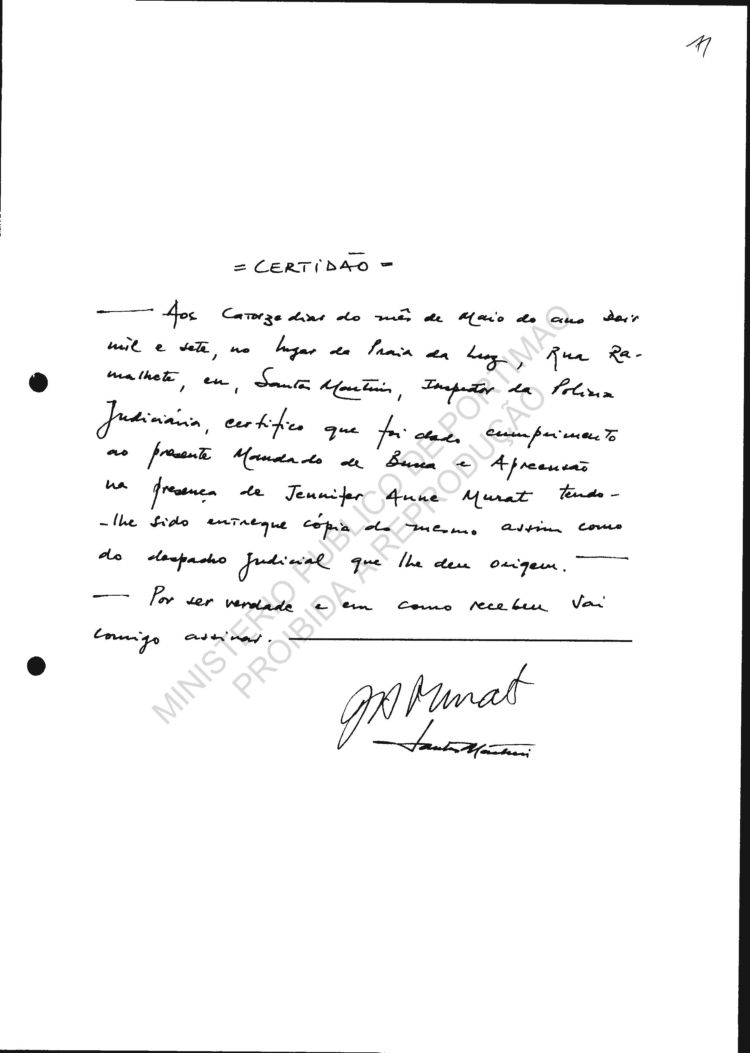 11
= CERTIDÃO =
Aos catorze dias do mês de Maio do ano dois
mil e sete, no lugar da Praia da Luz, Rua Ra-
malhete, eu, Santos Martins, Inspetor da Polícia
Judiciária, certifico que foi dado cumprimento
ao presente Mandado de Busca e Apreensão
na presença de Jennifer Anne Murat tendo-
-lhe sido entregue cópia do mesmo assim como
do despacho Judicial que lhe deu origem.
Por ser verdade e em como recebeu vai
comigo assinar.
JA Murat
Santos Martins
MINISTERIO PUBLICO DE PORTIMAO
PROIBIDA A REPRODUÇÃO